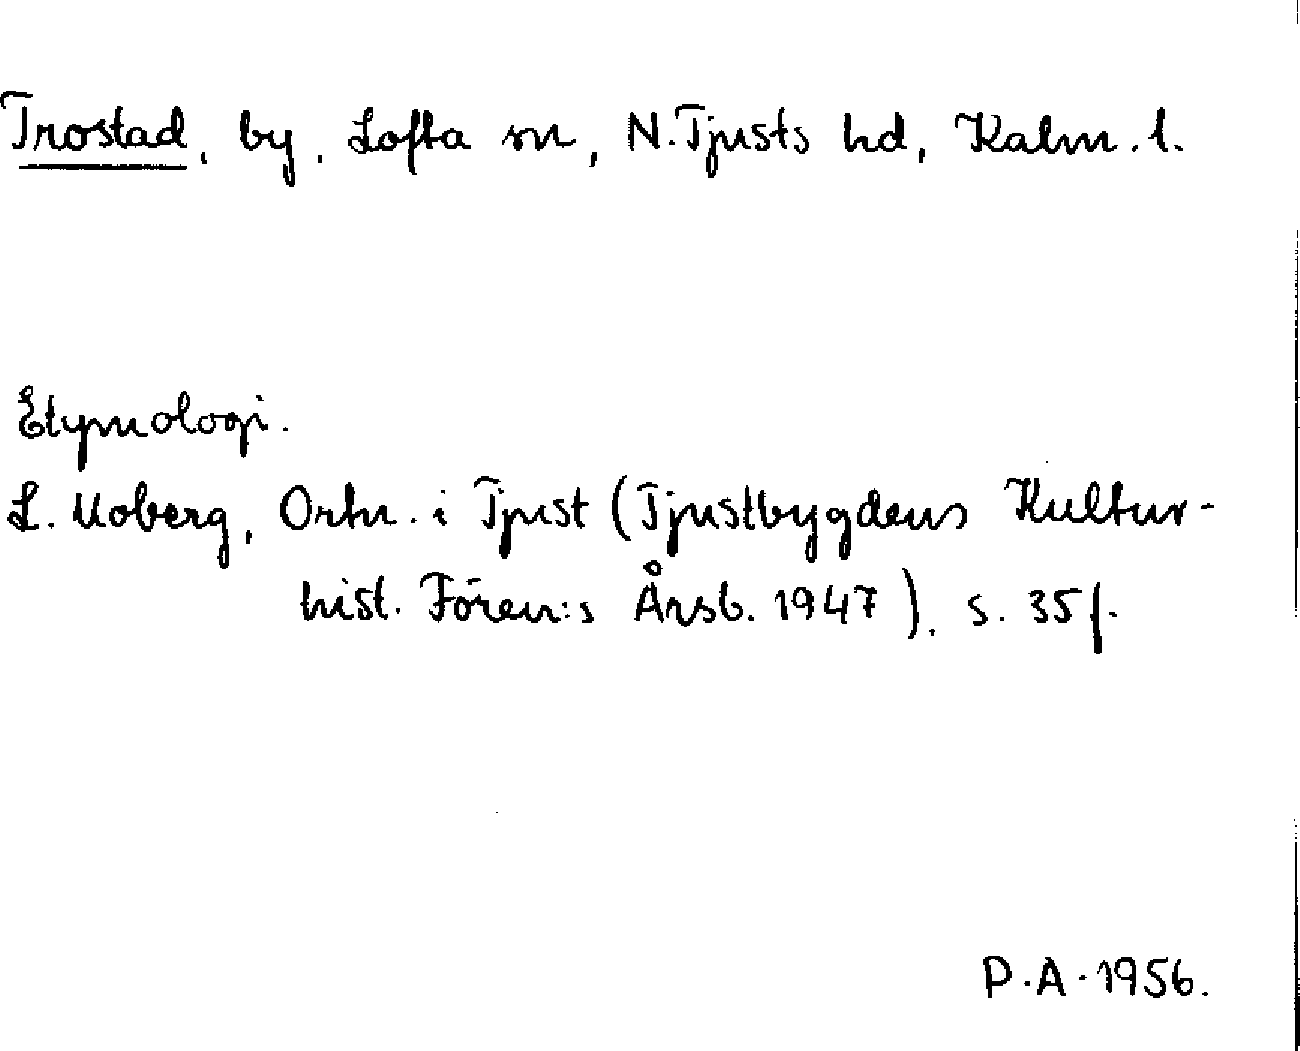 Trostad, by, Lofta sn, N. Tjusts hd, Kalm. l.
Etymologi.
L. Moberg, Ortn. i Tjust (Tjustbygdens Kultur-
hist. Fören:s Årsb. 1947), s. 35 f.
P.A. 1956.